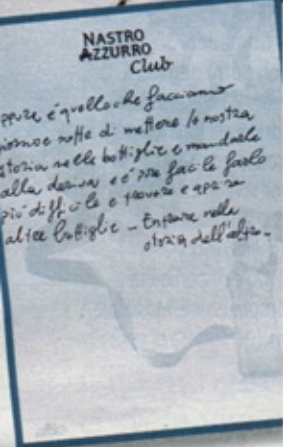 NASTRO
AZZURRO
Club
ppure è quello che facciamo
giorno e notte di mettere la nostra
storia nelle bottiglie e mandarle
alla deriva e è più facile farlo
più difficile e trovare e aprire
altre bottiglie - Entrare nella
storia dell'altro -